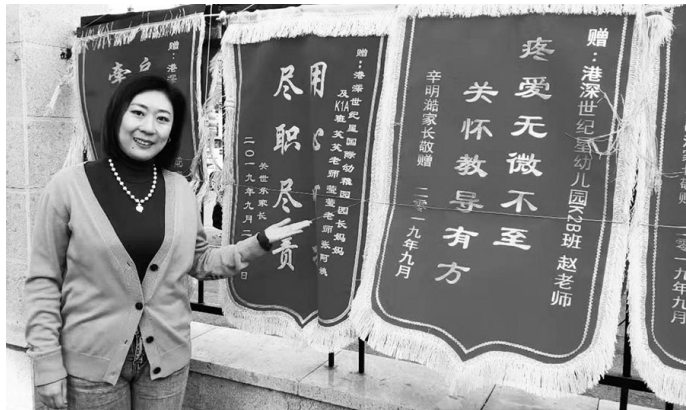 赠：港深
牵
赠：港深世纪星国际幼稚园 园长妈妈
及K1A班 芙芙老师 莹莹老师 张阿姨
用心
尽职尽责
关世东家长
二〇一九年九月二 日
赠：港深世纪星幼儿园K2B班 赵老师
疼爱无微不至
关怀教导有方
辛明澔家长敬赠 二零一九年九月
家长敬赠 二零一九年九月